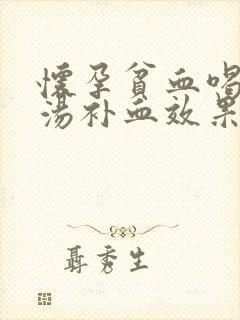 懷孕貧血喝
湯补血效果
聶秀生